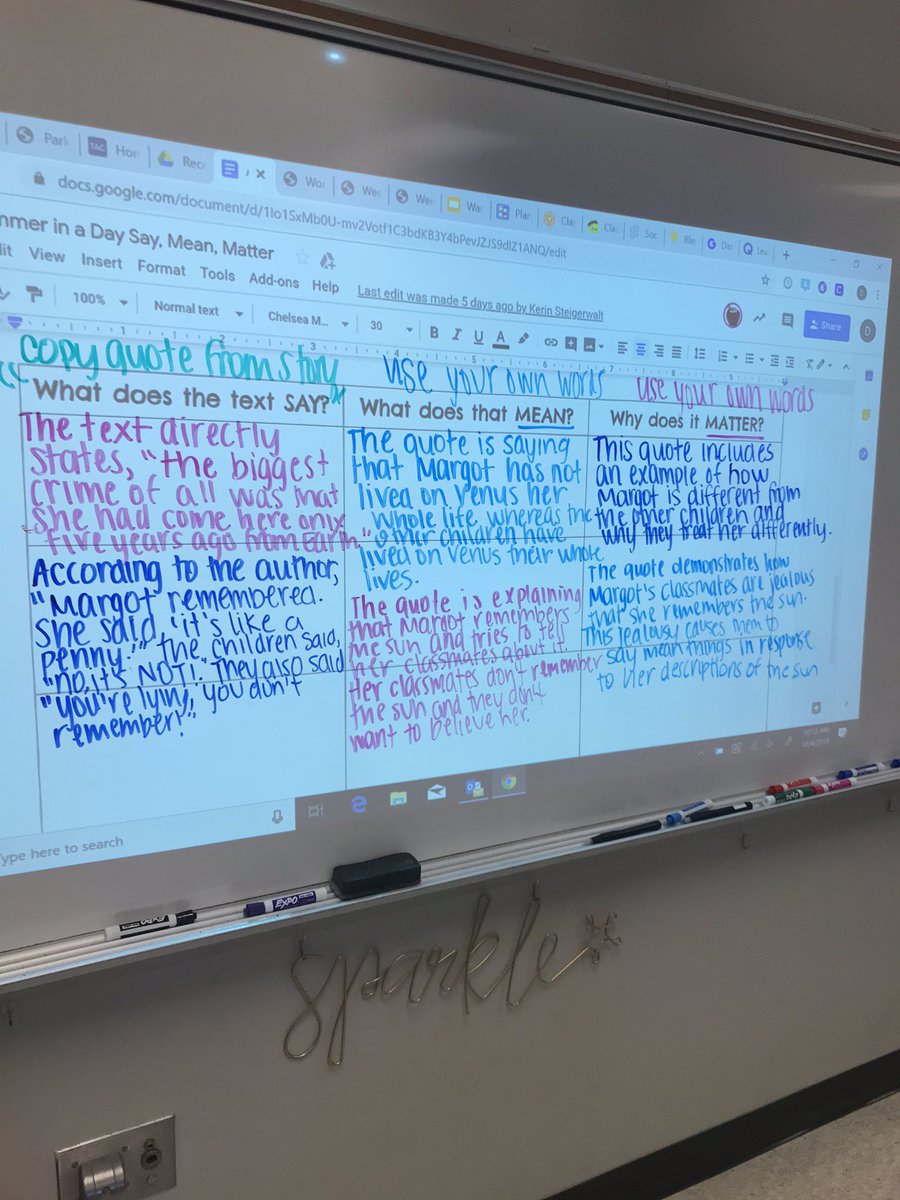 Park
TAC Hom
Rec
Wor
Wee
Wee
War
Plan
Clas
Clas
Soc
Ble
Dac
docs.google.com/document/d/1Io1SxMb0U-mv2Votf1C3bdKB3Y4bPevJZJS9dIZ1ANQ/edit
mmer in a Day Say, Mean, Matter
dit View Insert Format Tools Add-ons Help
Last edit was made 5 days ago by Kerin Steigerwalt
100% Normal text Chelsea M... 30 B I U A
Share
D
1 2 3 4 5 6 7 8 9
"copy quote from story"
What does the text SAY?
The text directly
states, "the biggest
crime of all was that
she had come here only
five years ago from Earth."
According to the author,
"Margot remembered.
She said, "it's like a
penny." The children said,
"no, it's NOT!" They also said
"you're lying, you don't
remember!"
use your own words
What does that MEAN?
The quote is saying
that Margot has not
lived on Venus her
whole life, whereas the
other children have
lived on Venus their whole
lives.
The quote is explaining
that Margot remembers
the sun and tries to tell
her classmates about it.
Her classmates don't remember
the sun and they don't
want to believe her.
use your own words
Why does it MATTER?
This quote includes
an example of how
Margot is different from
the other children and
why they treat her differently.
The quote demonstrates how
Margot's classmates are jealous
that she remembers the sun.
This jealousy causes them to
say mean things in response
to her descriptions of the sun
Type here to search
10:12 AM
EXPO
EXPO
sparkle